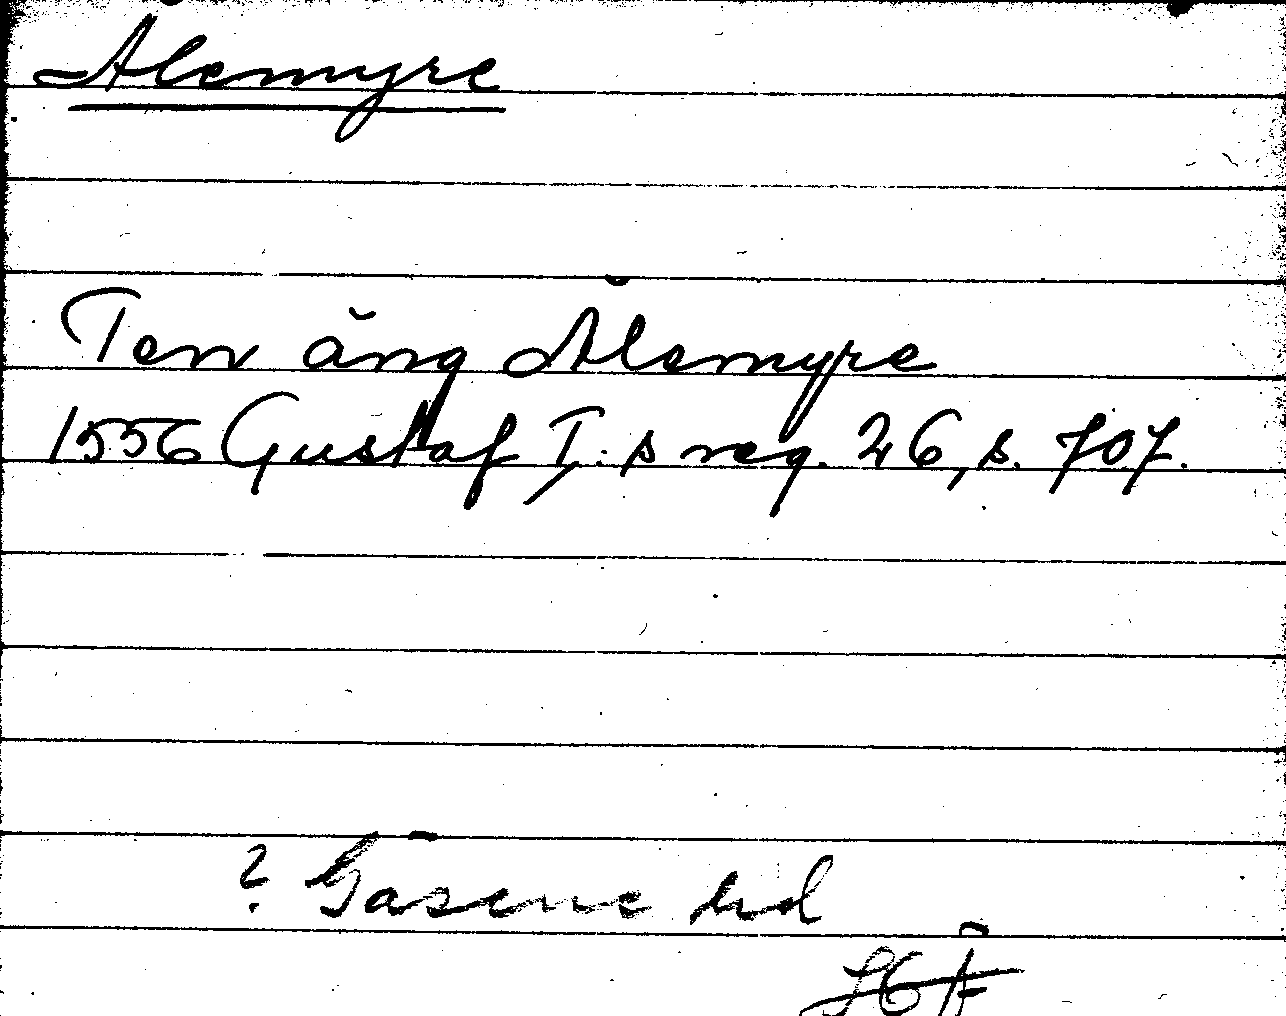 Ålemyre
Ten äng Ålemyre
1556 Gustaf I:s reg. 26, s. 707.
? Gäsene hd